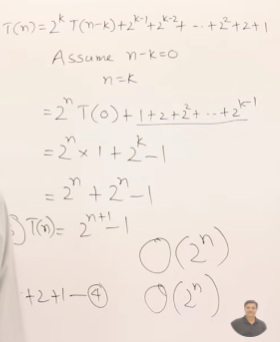 T(n) = 2^k T(n-k) + 2^{k-1} + 2^{k-2} + --- + 2^2 + 2 + 1
Assume n-k=0
n=k
= 2^n T(0) + 1 + 2 + 2^2 + --- + 2^{k-1}
= 2^n × 1 + 2^k - 1
= 2^n + 2^n - 1
) T(n) = 2^{n+1} - 1
O(2^n)
+2+1—④ O(2^n)